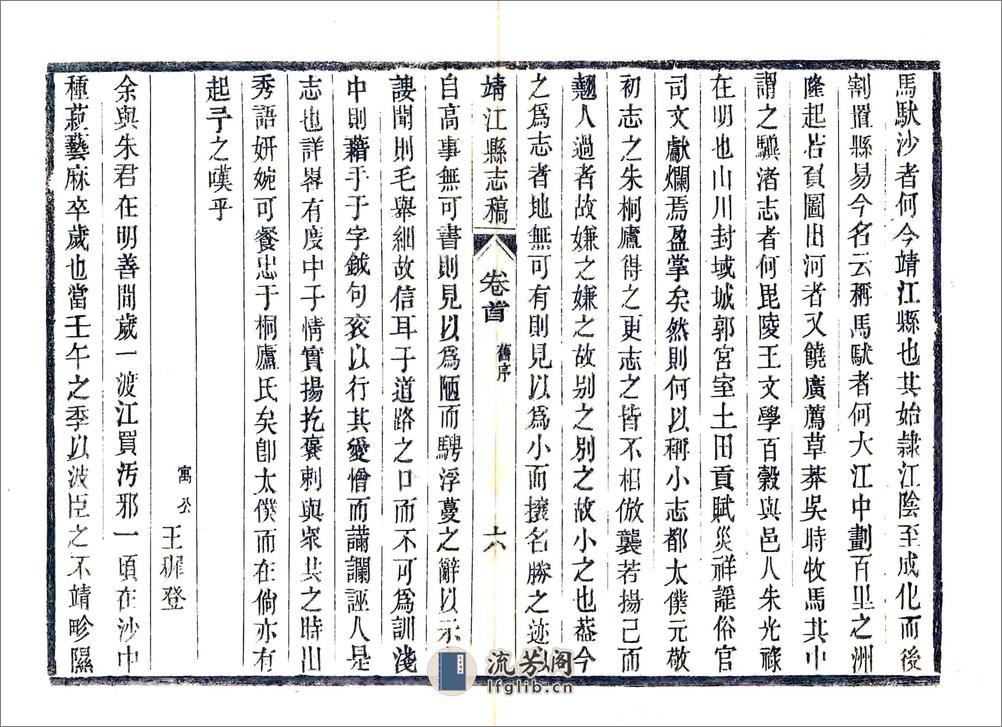 馬馱沙者何今靖江縣也其始隸江陰至成化而後
割置縣易今名云稱馬馱者何大江中劃百里之洲
隆起若負圖出河者又饒廣薦草莽吳時牧馬其中
謂之驥渚志者何毘陵王文學百穀與邑人朱光祿
在明也山川封域城郭宮室土田貢賦災祥謡俗官
司文獻爛焉盈掌矣然則何以稱小志都太僕元敬
初志之朱桐廬得之更志之皆不相倣襲若揚己而
翹人過者故嫌之嫌之故别之别之故小之也葢今
之爲志者地無可有則見以爲小而攘名勝之迹以
靖江縣志稿
卷首
舊序
六
自高事無可書則見以爲陋而騁浮蔓之辭以示
謏聞則毛舉細故信耳于道路之口而不可爲訓淺
中則藉于于字鉞句衮以行其愛憎而讕誣人是
志也詳畧有度中于情實揚扢褒刺與衆共之時出
秀語妍婉可餐忠于桐廬氏矣卽太僕而在倘亦有
起予之嘆乎
寓公
王穉登
余與朱君在明善閒歲一渡江買汚邪一頃在沙中
種菽藝麻卒歲也當壬午之季以波臣之不靖畛隰
流芳阁
lfglib.cn